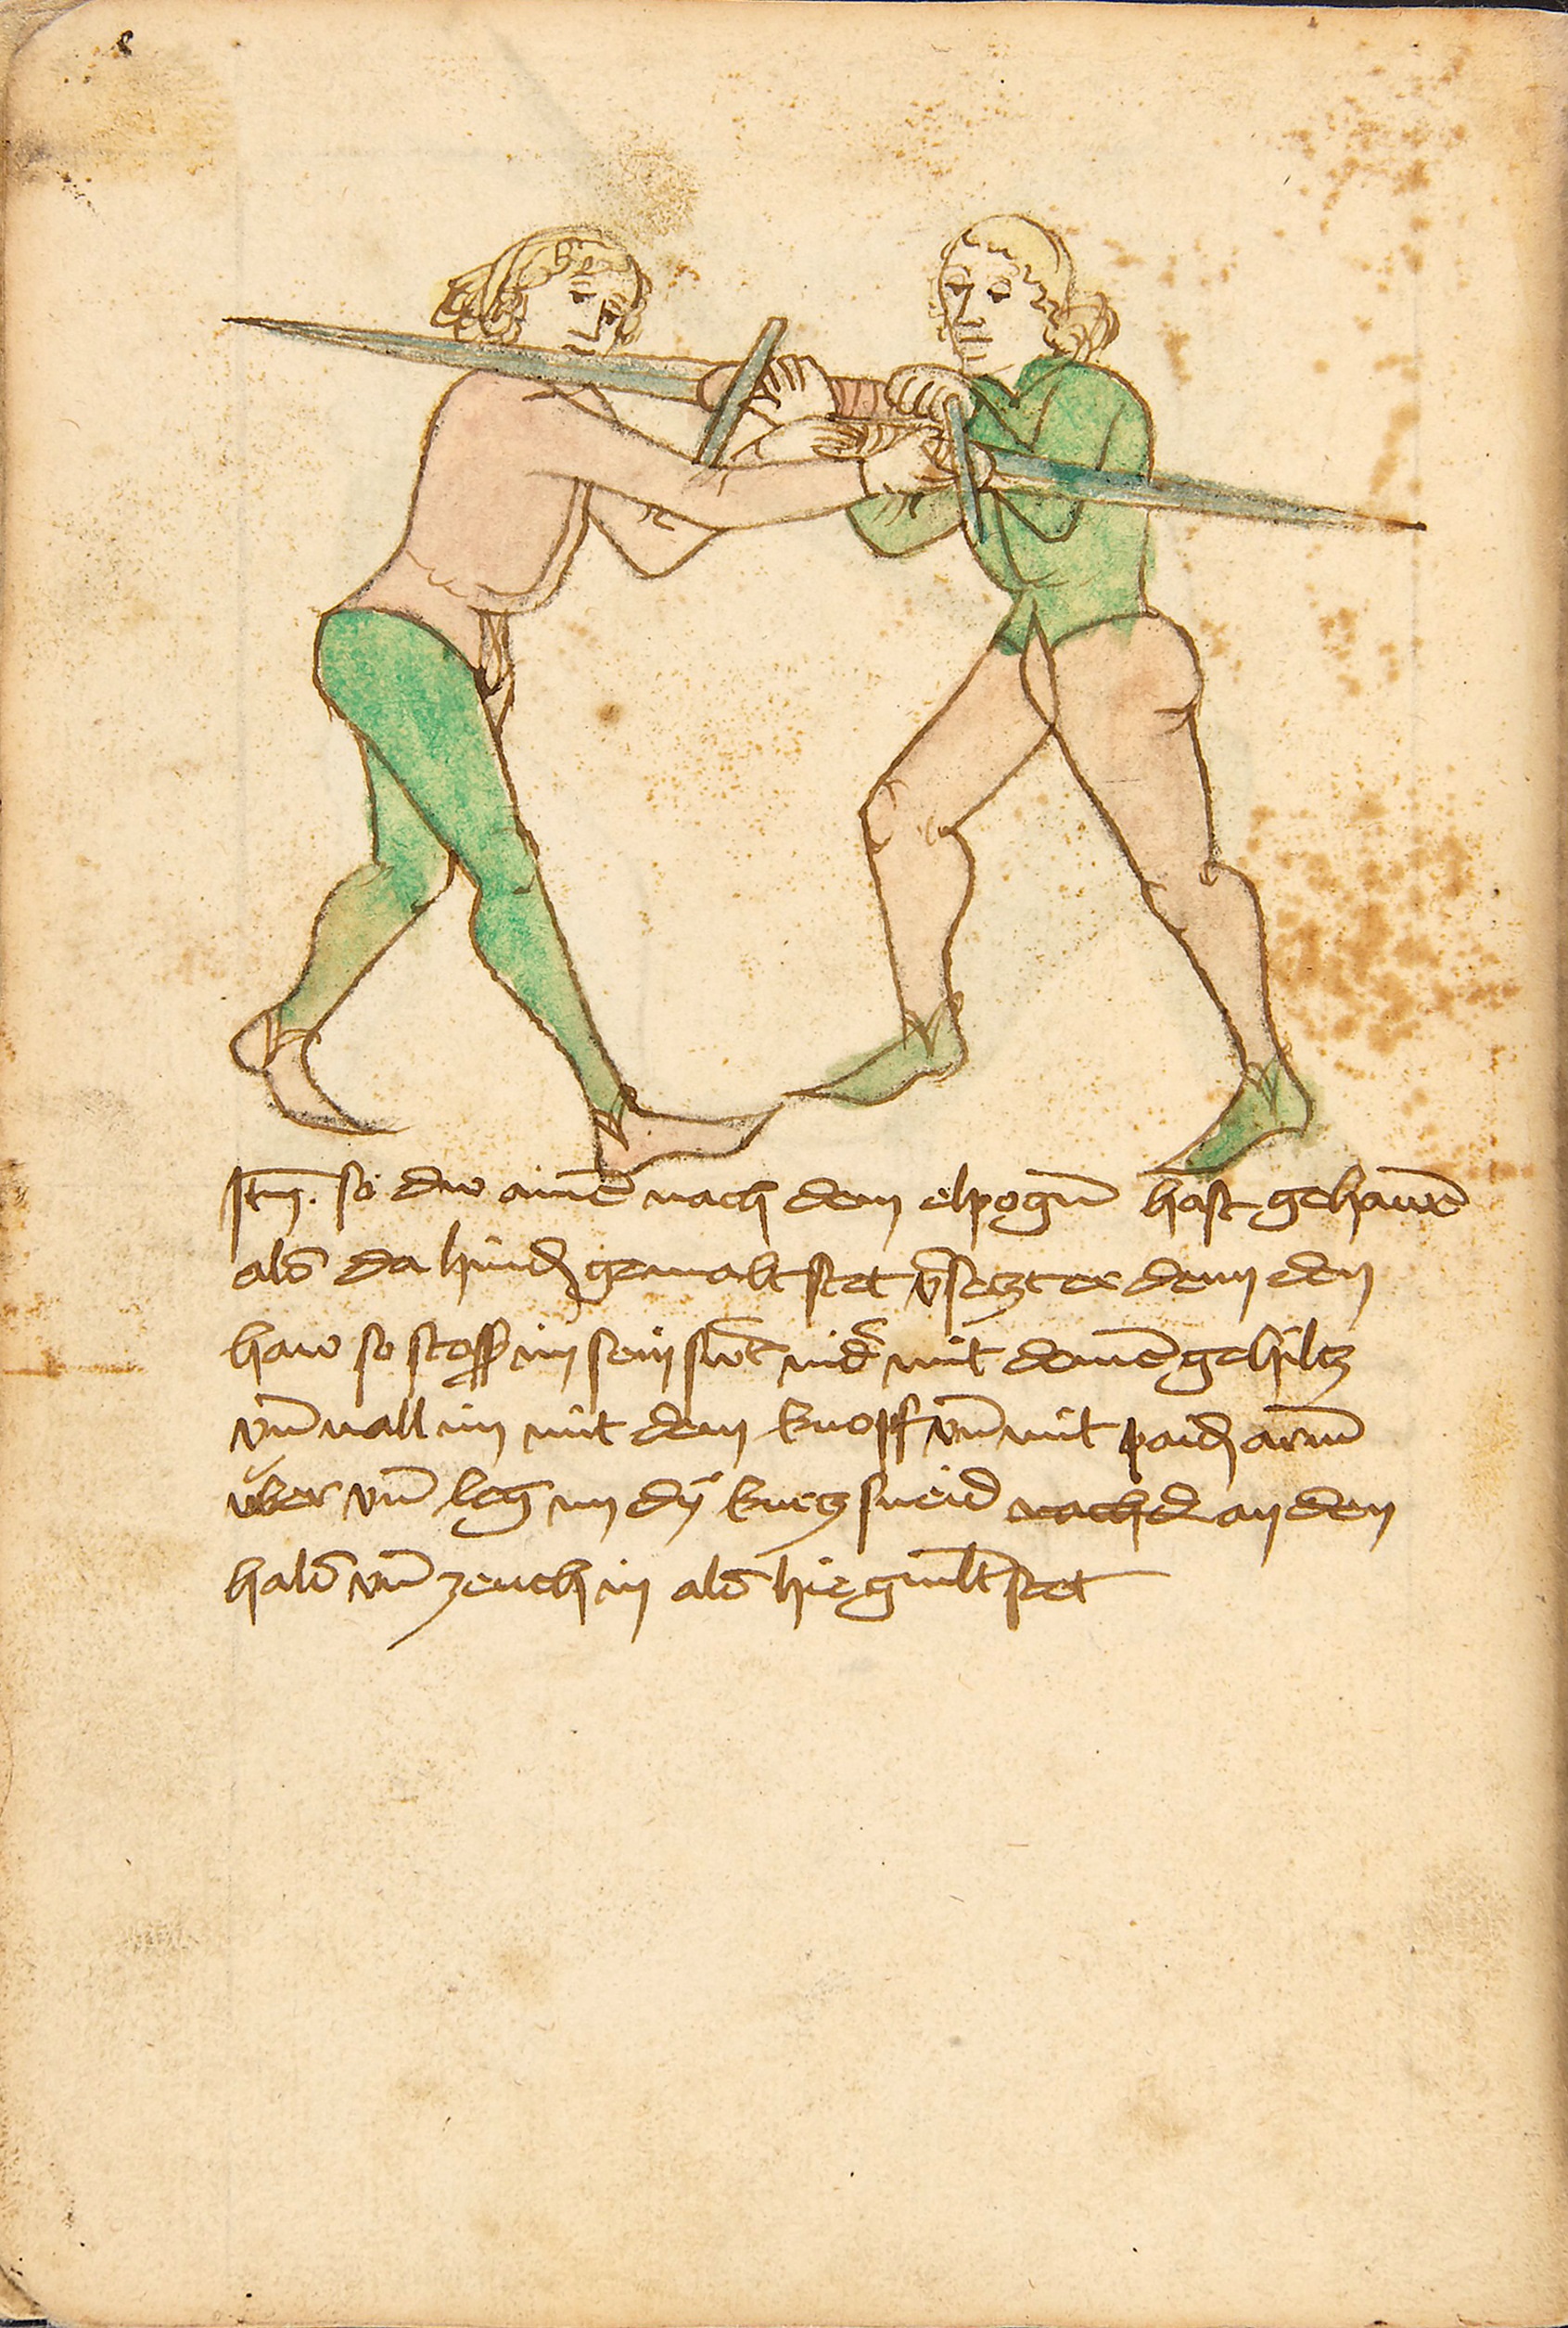 Itm. so dw ainē nach dem elpogn̄ hast gehawē
als da hindn gemalt stet v̄setzt er denn den
haw so stoss im sein swt nidˢ mit deinē gehiltz
vn̄ vall im mit dem knopf vn̄ mit paidn arm̄
über vn̄ leg im dÿ kurtz sneid nach d an den
hals vn̄ zeuch in als hie gmlt stet